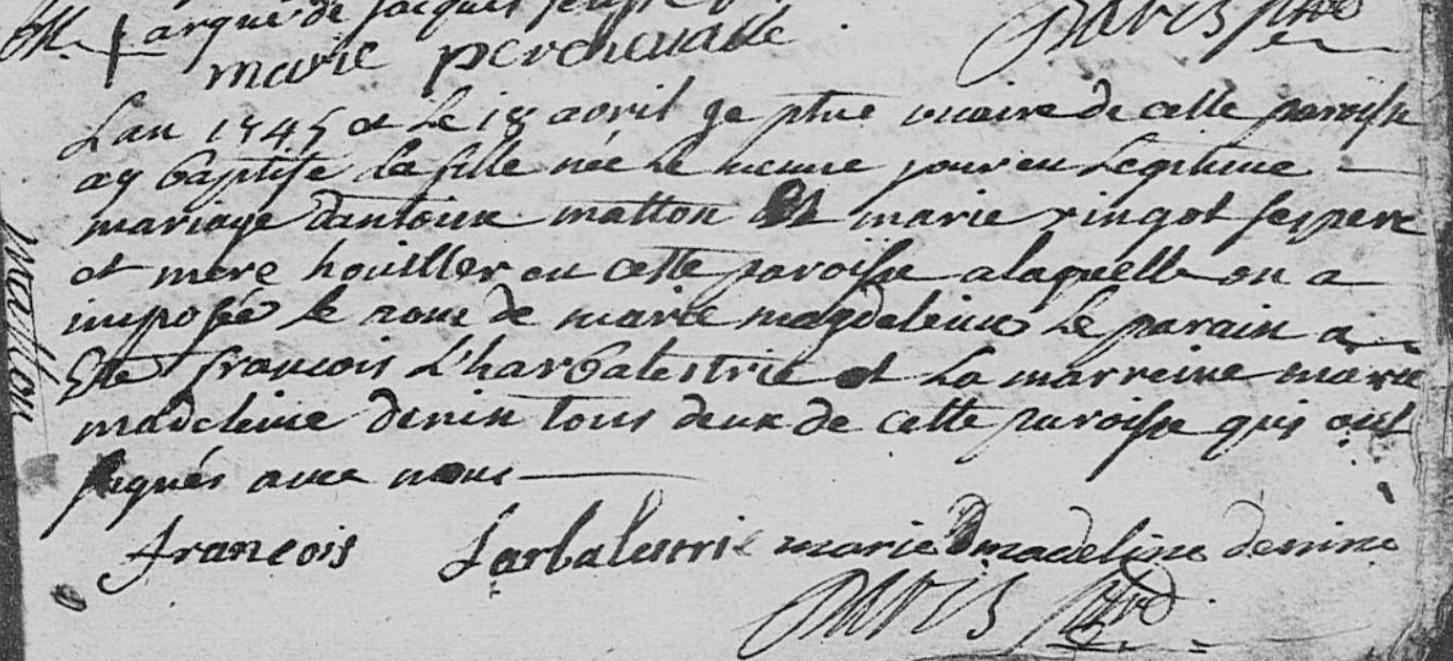 marque de jacques
marie perchevalle
Lan 1745 et Le 18 avril je ptre vicaire de cette paroisse
ay baptise la fille née le meme jour en Legitime
mariage dantoine matton et marie ringot ses pere
et mere houiller en cette paroisse a laquelle on a
imposée le nom de marie magdeleine Le parain a
Esté francois L'harbalestrie et La marreine marie
madeleine denin tous deux de cette paroisse qui ont
signés avec nous
francois Larbalestrie marie madeline denine
ptre